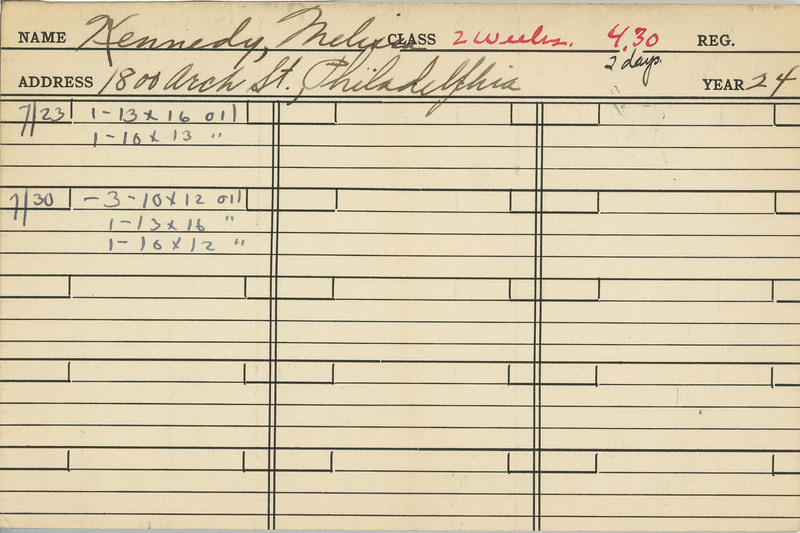 NAME Kennedy, Melissa CLASS 2 Weeks. 4.30 REG.
2 days.
ADDRESS 1800 Arch St., Philadelphia YEAR 24
7/23 1-13 x 16 oil
1-10 x 13 "
7/30 -3-10 x 12 oil
1-13 x 16 "
1-10 x 12 "